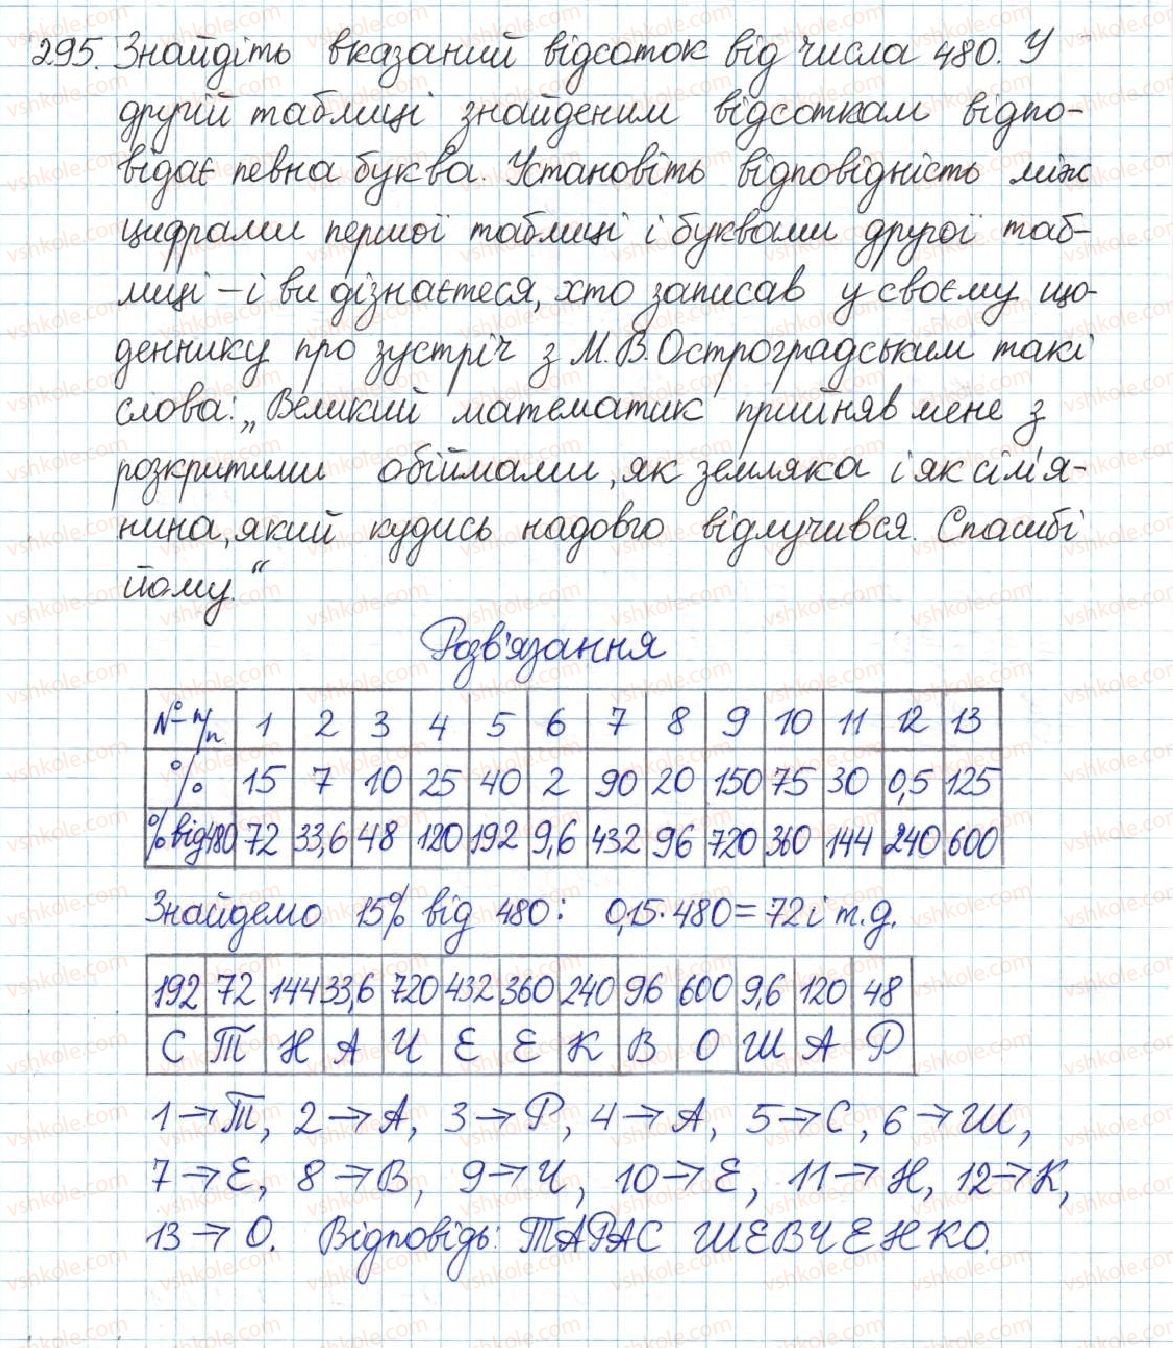 295. Знайдіть вказаний відсоток від числа 480. У
другій таблиці знайденим відсоткам відпо-
відає певна буква. Установіть відповідність між
цифрами першої таблиці і буквами другої таб-
лиці – і ви дізнаєтеся, хто записав у своєму що-
деннику про зустріч з М.В. Остроградським такі
слова: „Великий математик прийняв мене з
розкритими обіймами, як земляка і як сім'я-
нина, який кудись надовго відлучився. Спасибі
йому.“
Розв'язання
№ п/п 1 2 3 4 5 6 7 8 9 10 11 12 13
% 15 7 10 25 40 2 90 20 150 75 30 0,5 125
% від 480 72 33,6 48 120 192 9,6 432 96 720 360 144 240 600
Знайдемо 15% від 480: 0,15·480=72 і т.д.
192 72 144 33,6 720 432 360 240 96 600 9,6 120 48
С Т Н А Ч Е Е К В О Ш А Р
1→Т, 2→А, 3→Р, 4→А, 5→С, 6→Ш,
7→Е, 8→В, 9→Ч, 10→Е, 11→Н, 12→К,
13→О. Відповідь: ТАРАС ШЕВЧЕНКО.